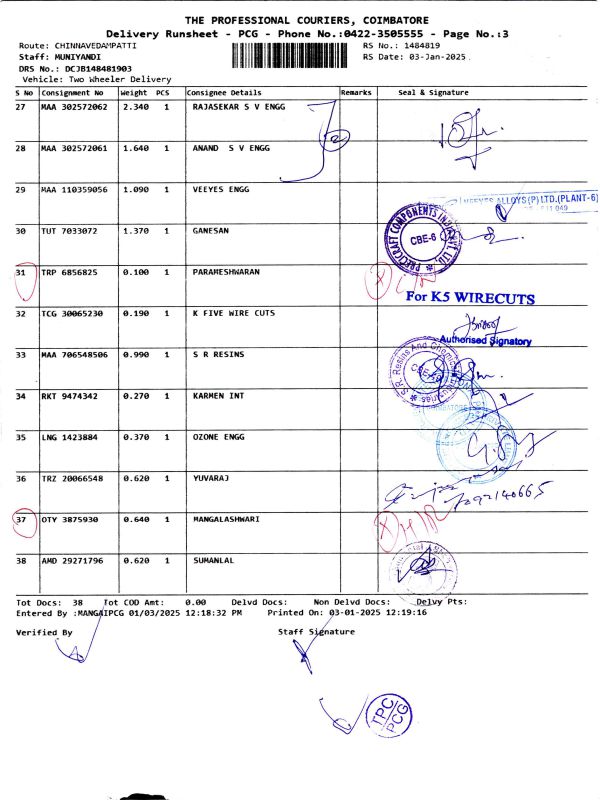 THE PROFESSIONAL COURIERS, COIMBATORE
Delivery Runsheet - PCG - Phone No.:0422-3505555 - Page No.:3
Route: CHINNAVEDAMPATTI RS No.: 1484819
Staff: MUNIYANDI RS Date: 03-Jan-2025
DRS No.: DCJB148481903
Vehicle: Two Wheeler Delivery
S No Consignment No Weight PCS Consignee Details Remarks Seal & Signature
27 MAA 302572062 2.340 1 RAJASEKAR S V ENGG
2
28 MAA 302572061 1.640 1 ANAND S V ENGG
29 MAA 110359056 1.090 1 VEEYES ENGG
VEEYES ALLOYS(P)LTD.(PLANT-6)
30 TUT 7033072 1.370 1 GANESAN
CBE-6
31 TRP 6856825 0.100 1 PARAMESHWARAN
For K5 WIRECUTS
32 TCG 30065230 0.190 1 K FIVE WIRE CUTS
Authorised Signatory
33 MAA 706548506 0.990 1 S R RESINS
S.R. Resins And Chemic
34 RKT 9474342 0.270 1 KARMEN INT
35 LNG 1423884 0.370 1 OZONE ENGG
36 TRZ 20066548 0.620 1 YUVARAJ
37 OTY 3875930 0.640 1 MANGALASHWARI
38 AMD 29271796 0.620 1 SUMANLAL
Tot Docs: 38 Tot COD Amt: 0.00 Delvd Docs: Non Delvd Docs: Delvy Pts:
Entered By :MANGAIPCG 01/03/2025 12:18:32 PM Printed On: 03-01-2025 12:19:16
Verified By Staff Signature
TPC
PCG